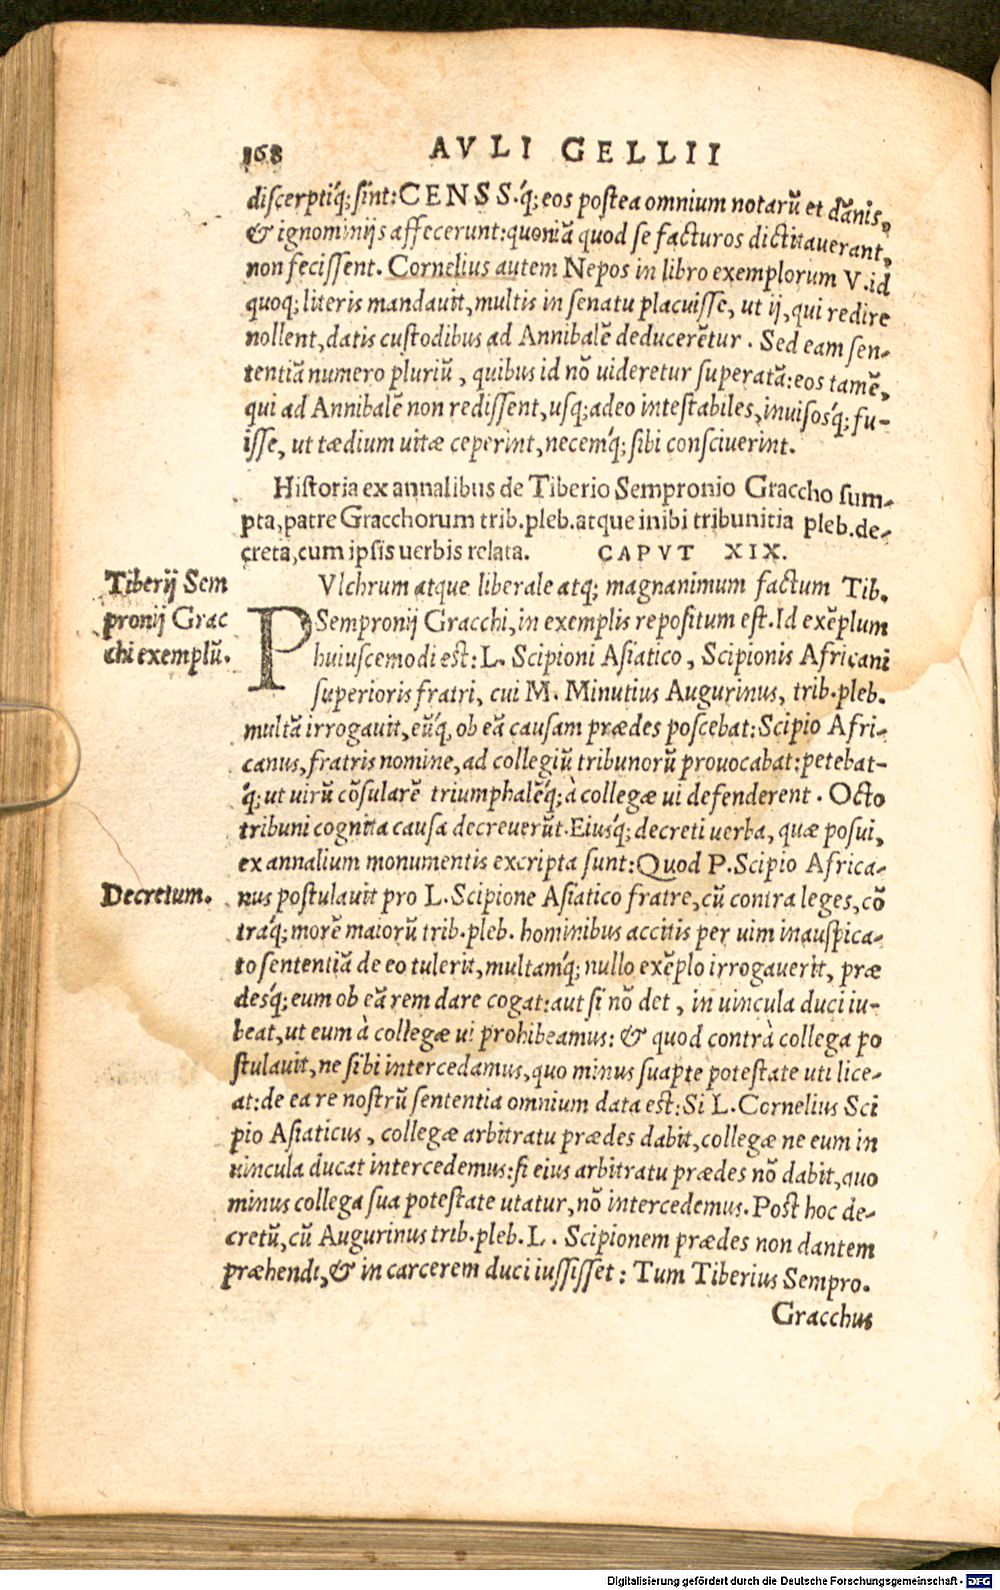 168 AVLI GELLII
discerptiq́; sint: CENSS.q́; eos postea omnium notarũ et dãnis,
& ignominijs affecerunt: quoniã quod se facturos dictitauerant,
non fecissent. Cornelius autem Nepos in libro exemplorum V. id
quoq; literis mandauit, multis in senatu placuisse, ut ij, qui redire
nollent, datis custodibus ad Annibalẽ deducerẽtur. Sed eam sen-
tentiã numero pluriũ, quibus id nõ uideretur superatã: eos tamẽ,
qui ad Annibalẽ non redissent, usq; adeo intestabiles, inuisosq́; fu-
isse, ut tædium uitæ ceperint, necemq́; sibi consciuerint.
Historia ex annalibus de Tiberio Sempronio Graccho sum-
pta, patre Gracchorum trib. pleb. atque inibi tribunitia pleb. de-
creta, cum ipsis uerbis relata. CAPVT XIX.
Tiberij Sem
pronij Grac
chi exemplũ.
PVlchrum atque liberale atq; magnanimum factum Tib.
Sempronij Gracchi, in exemplis repositum est. Id exẽplum
huiuscemodi est: L. Scipioni Asiatico, Scipionis Africani
superioris fratri, cui M. Minutius Augurinus, trib. pleb.
multã irrogauit, eũq́, ob eã causam prædes poscebat: Scipio Afri-
canus, fratris nomine, ad collegiũ tribunorũ prouocabat: petebat-
q́; ut uirũ cõsularẽ triumphalẽq́; à collegæ ui defenderent. Octo
tribuni cognita causa decreuerũt. Eiusq́; decreti uerba, quæ posui,
ex annalium monumentis excripta sunt: Quod P. Scipio Africa-
Decretum.
nus postulauit pro L. Scipione Asiatico fratre, cũ contra leges, cõ
traq́; morẽ maiorũ trib. pleb. hominibus accitis per uim inauspica-
to sententiã de eo tulerit, multamq́; nullo exẽplo irrogauerit, præ
desq́; eum ob eã rem dare cogat: aut si nõ det, in uincula duci iu-
beat, ut eum à collegæ ui prohibeamus: & quod contrà collega po
stulauit, ne sibi intercedamus, quo minus suapte potestate uti lice-
at: de ea re nostrũ sententia omnium data est: Si L. Cornelius Sci
pio Asiaticus, collegæ arbitratu prædes dabit, collegæ ne eum in
uincula ducat intercedemus: si eius arbitratu prædes nõ dabit, quo
minus collega sua potestate utatur, nõ intercedemus. Post hoc de-
cretũ, cũ Augurinus trib. pleb. L. Scipionem prædes non dantem
præhendi, & in carcerem duci iussisset: Tum Tiberius Sempro.
Gracchus
Digitalisierung gefördert durch die Deutsche Forschungsgemeinschaft - DFG